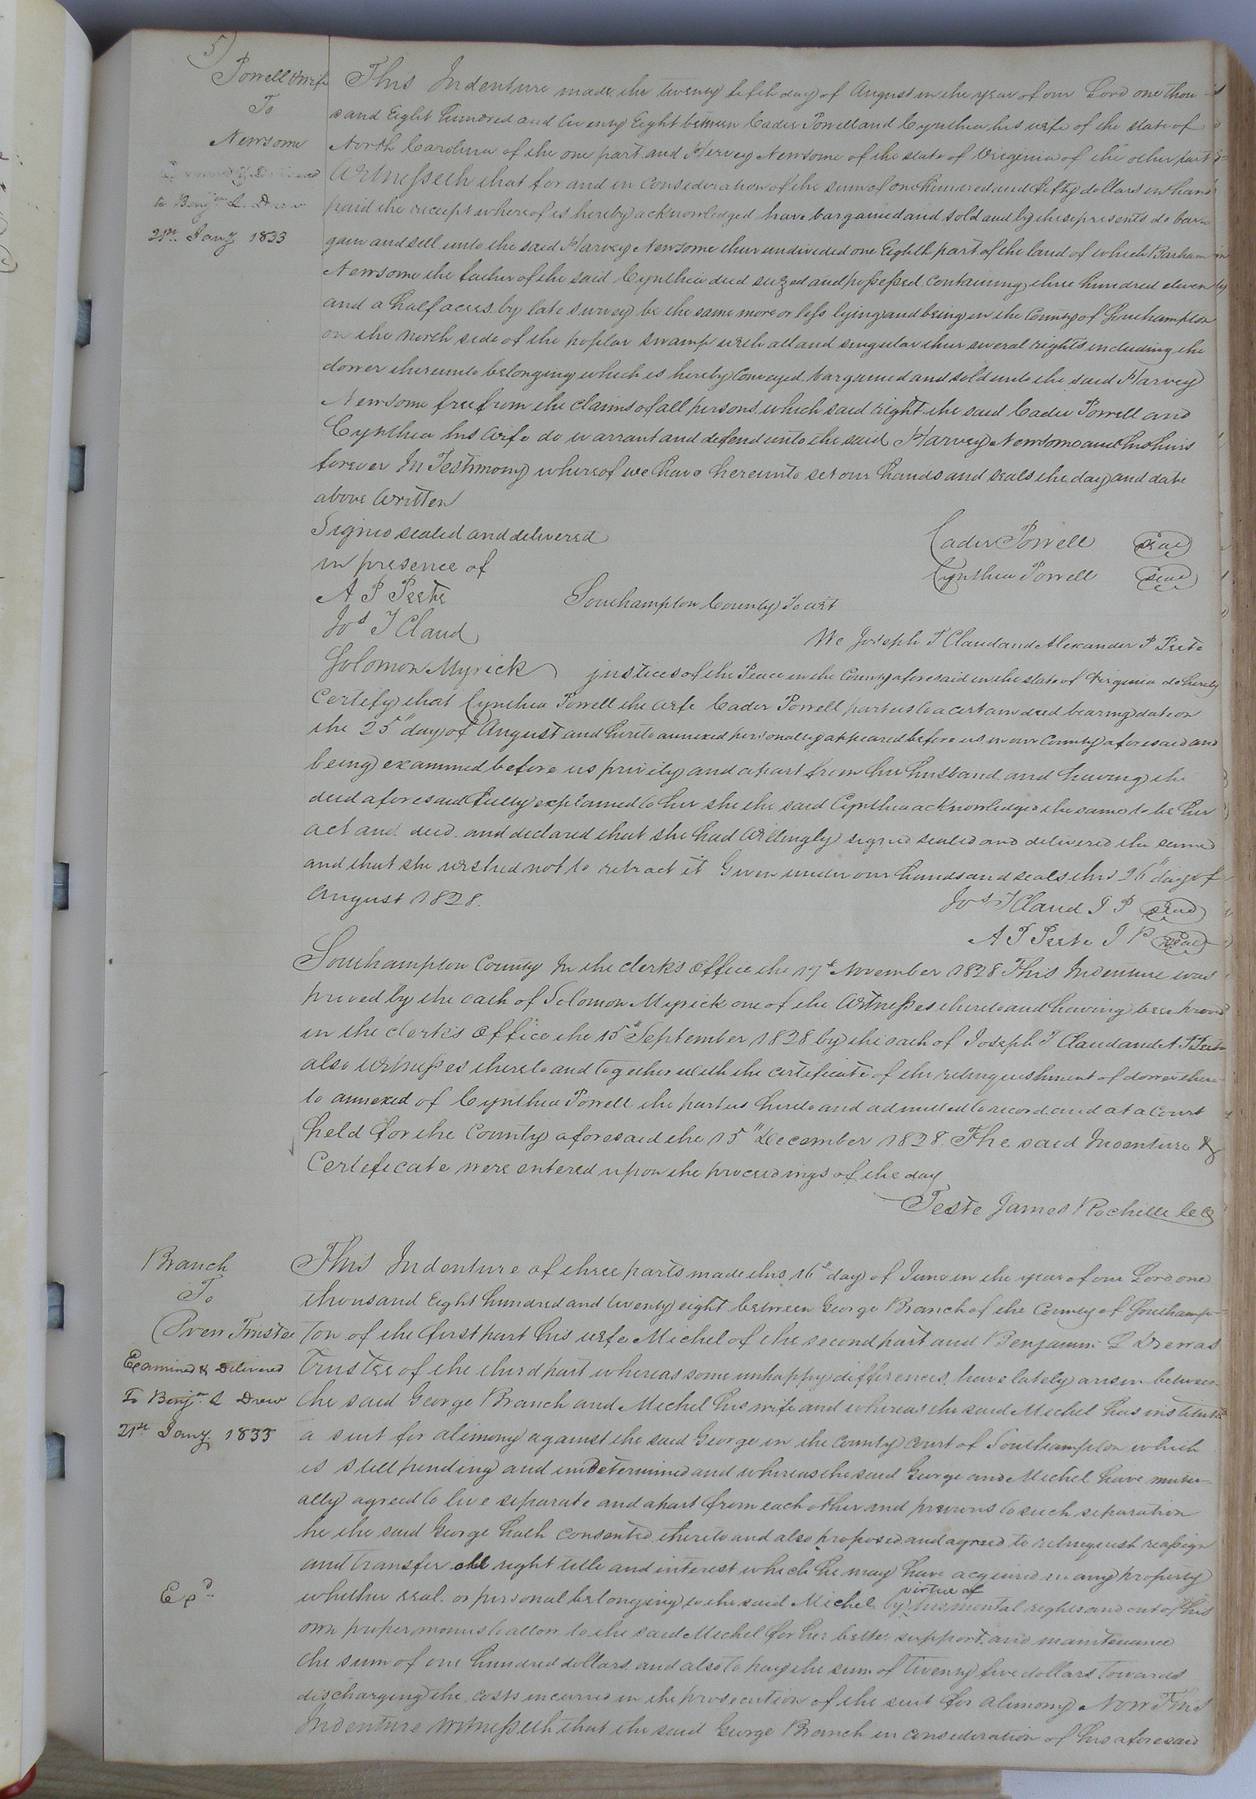 5)
Powell & wife
To
Newsome
Examined & Delivered
to Benjn L. Drew
21st Jany 1833
This Indenture made the twenty fifth day of August in the year of our Lord one thou-
sand Eight hundred and twenty Eight between Cader Powell and Cynthia his wife of the state of
North Carolina of the one part and Harvey Newsome of the state of Virginia of the other part
Witnesseth that for and in consideration of the sum of one hundred and fifty dollars in hand
paid the receipt whereof is hereby acknowledged have bargained and sold and by these presents do bar-
gain and sell unto the said Harvey Newsome their undivided one Eighth part of the land of which Barham
Newsome the father of the said Cynthia died seized and possessed containing three hundred eleven
and a half acres by late survey be the same more or less lying and being in the County of Southampton
on the North side of the poplar swamp with all and singular their several rights including the
dower thereunto belonging which is hereby conveyed bargained and sold unto the said Harvey
Newsome free from the claims of all persons which said right the said Cader Powell and
Cynthia his wife do warrant and defend unto the said Harvey Newsome and his heirs
forever In Testimony whereof we have hereunto set our hands and seals the day and date
above written
Signed sealed and delivered
in presence of
A P Peete
Jos T Claud
Solomon Myrick
Cader Powell seal
Cynthia Powell seal
Southampton County To wit
We Joseph T Claud and Alexander P Peete
justices of the Peace in the County aforesaid in the state of Virginia do hereby
Certify that Cynthia Powell the wife Cader Powell parties to a certain deed bearing date on
the 25th day of August and hereto annexed personally appeared before us in our County aforesaid and
being examined before us privily and apart from her husband and having the
deed aforesaid fully explained to her she the said Cynthia acknowledged the same to be her
act and deed and declared that she had willingly signed sealed and delivered the same
and that she wished not to retract it Given under our hands and seals this 26th day of
August 1828.
Jos T Claud J P seal
A P Peete J P seal
Southampton County In the clerks office the 17th November 1828 This Indenture was
proved by the oath of Solomon Myrick one of the Witnesses thereto and having been proved
in the clerks office the 15th September 1828 by the oath of Joseph T Claud and A P Peete
also witnesses thereto and together with the certificate of the relinquishment of dower there-
to annexed of Cynthia Powell the parties hereto and admitted to record and at a court
held for the County aforesaid the 15th December 1828 The said Indenture &
Certificate were entered upon the proceedings of the day
Teste James Rochelle CC
Branch
To
Drew Trustee
Examined & Delivered
To Benjn L Drew
21st Jany 1833
Exd
This Indenture of three parts made this 16th day of June in the year of our Lord one
thousand Eight hundred and twenty eight between George Branch of the County of Southamp-
ton of the first part his wife Michel of the second part and Benjamin L Drew as
Trustee of the third part whereas some unhappy differences have lately arisen between
the said George Branch and Michel his wife and whereas the said Michel has instituted
a suit for alimony against the said George in the county court of Southampton which
is still pending and undetermined and whereas the said George and Michel have mutu-
ally agreed to live separate and apart from each other and previous to such separation
he the said George hath consented thereto and also proposed and agreed to relinquish reassign
and transfer all right title and interest which he may have acquired in any property
whether real or personal belonging to the said Michel by virtue of his marital rights and out of his
own proper monies to allow to the said Michel for her better support and maintenance
the sum of one hundred dollars and also to pay the sum of twenty five dollars towards
discharging the costs incurred in the prosecution of the suit for alimony Now This
Indenture Witnesseth that the said George Branch in consideration of his aforesaid